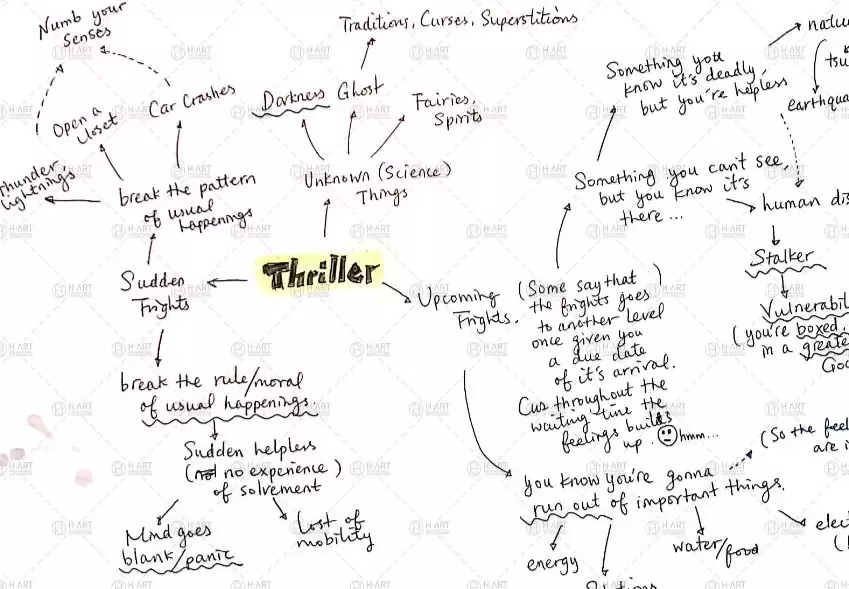 Numb your
Senses
Traditions, Curses, Superstitions
Darkness
Ghost
Fairies,
Spirits
Car Crashes
Open a
Closet
Thunder,
Lightnings
break the pattern
of usual
happenings
Unknown (Science)
Things
Thriller
Sudden
Frights
break the rule/moral
of usual happenings.
Sudden helpless
(no experience)
of solvement
Mind goes
blank/panic
Lost of
mobility
Upcoming
Frights.
(Some say that)
the frights goes
to another level
once given you
a due date
of it's arrival.
Cus throughout the
waiting time the
feelings builds
up. hmm...
Something you
know it's deadly,
but you're helpless
natu
tsu
earthqua
Something you can't see,
but you know it's
there...
human dis
Stalker
Vulnerabil
(you're boxed
in a greate
Go
you know you're gonna
run out of important things.
(So the feel
are i
energy
water/food
elec
H-ART